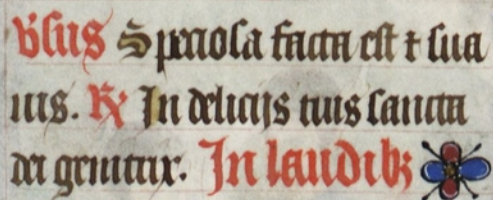 v̾sus Speciosa facta est ⁊ sua
uis. ℟ In delicijs tuis sancta
dei genitrix. In laudibꝫ